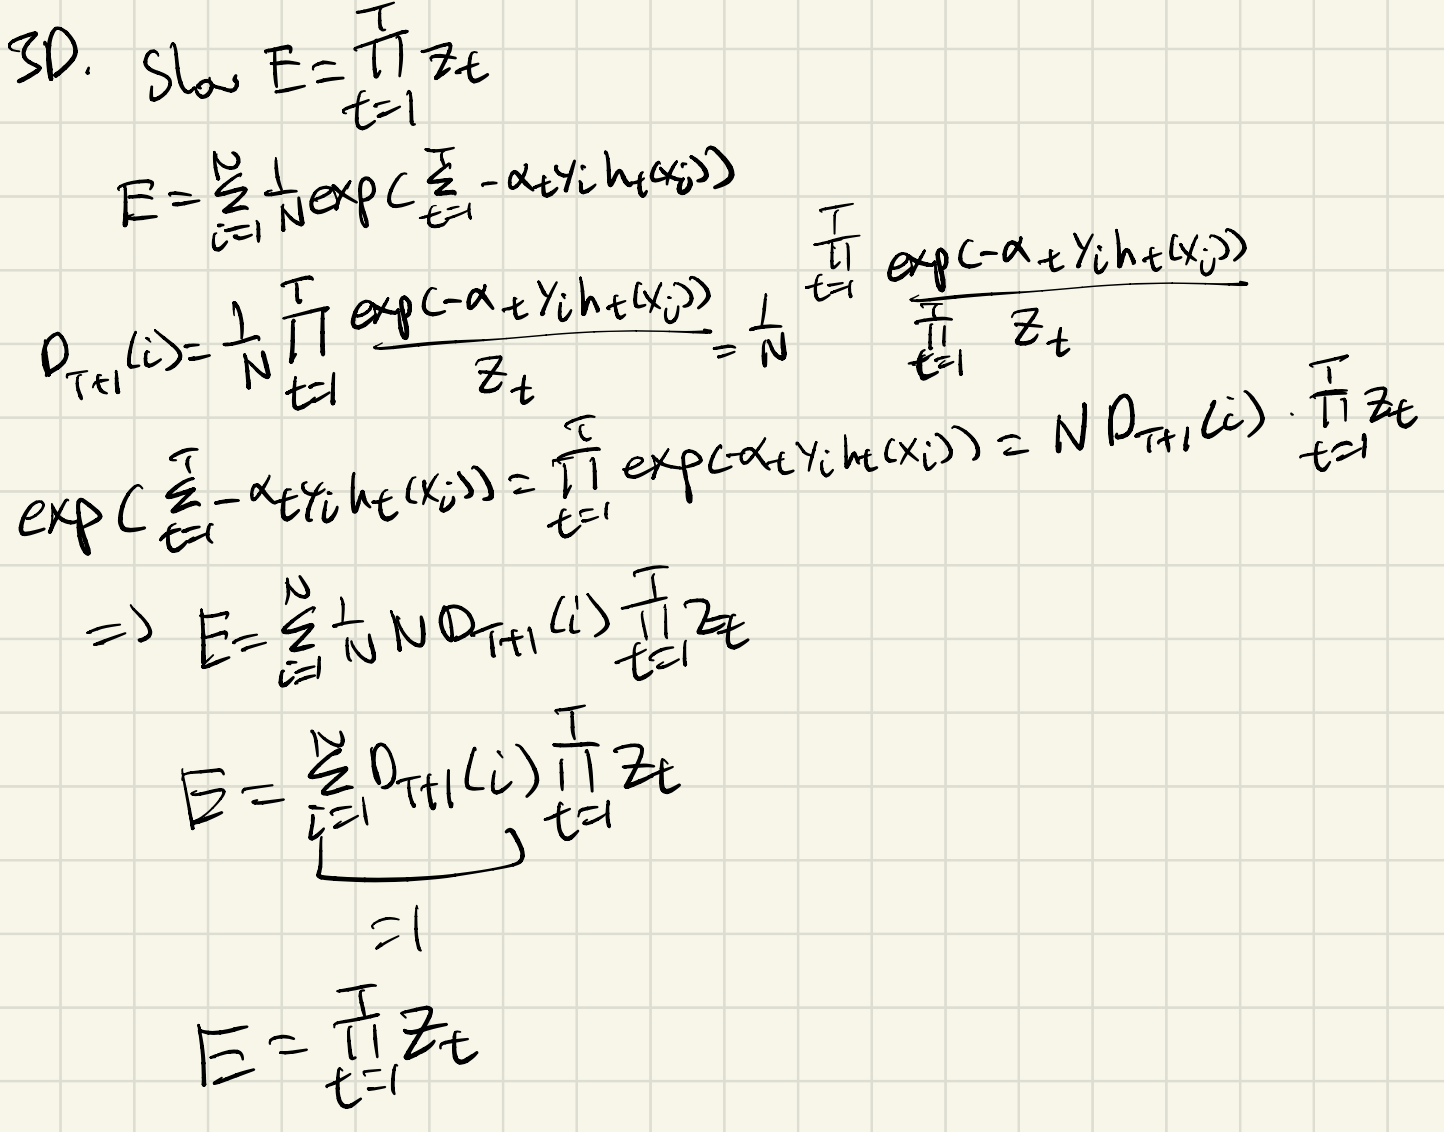 3D. Show E = ∏_{t=1}^{T} Z_t
E = Σ_{i=1}^{N} 1/N exp(Σ_{t=1}^{T} -α_t y_i h_t(x_i))
D_{T+1}(i) = 1/N ∏_{t=1}^{T} exp(-α_t y_i h_t(x_i)) / Z_t = 1/N ∏_{t=1}^{T} exp(-α_t y_i h_t(x_i)) / ∏_{t=1}^{T} Z_t
exp(Σ_{t=1}^{T} -α_t y_i h_t(x_i)) = ∏_{t=1}^{T} exp(-α_t y_i h_t(x_i)) = N D_{T+1}(i) · ∏_{t=1}^{T} Z_t
=> E = Σ_{i=1}^{N} 1/N N D_{T+1}(i) ∏_{t=1}^{T} Z_t
E = Σ_{i=1}^{N} D_{T+1}(i) ∏_{t=1}^{T} Z_t
=1
E = ∏_{t=1}^{T} Z_t